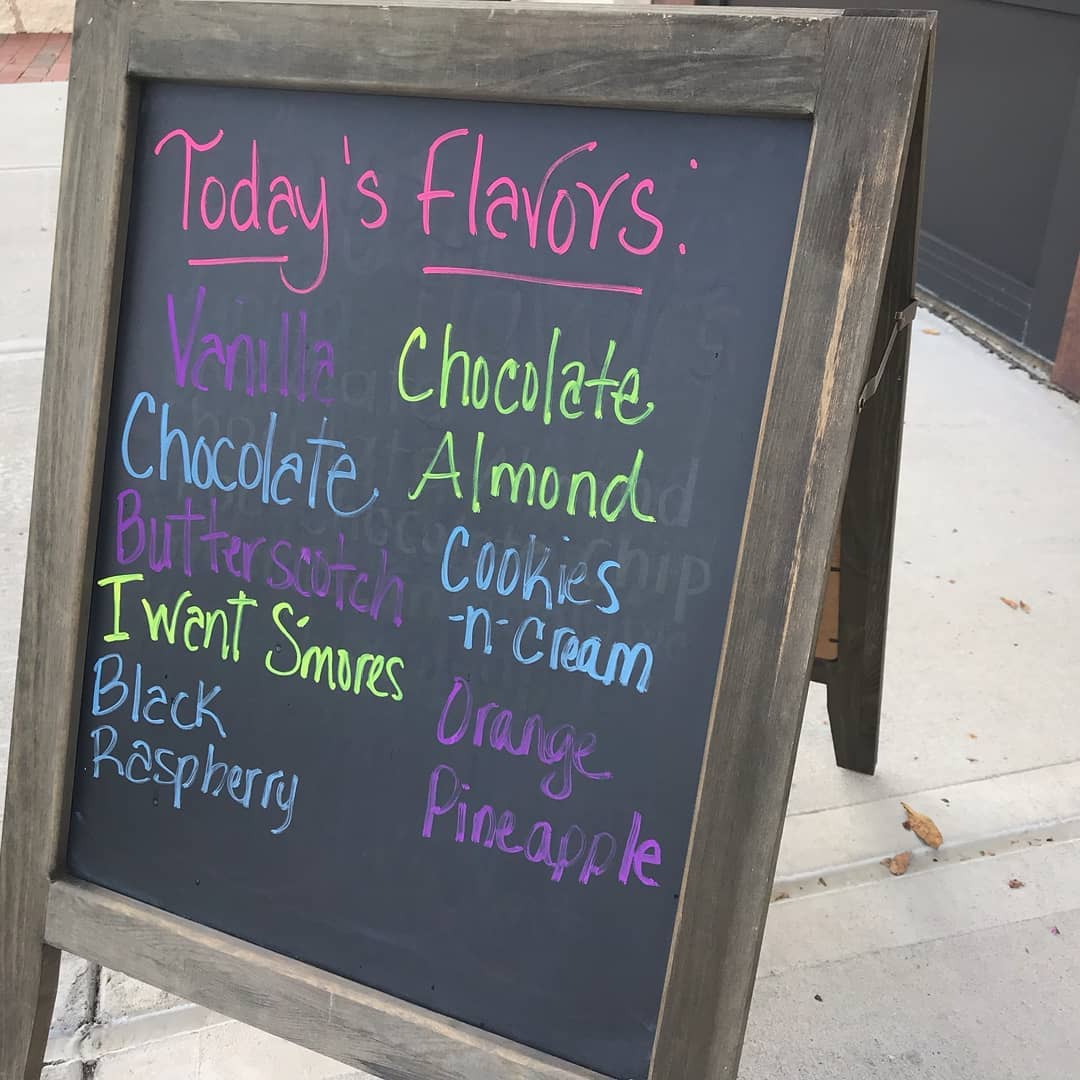 Today's Flavors:
Vanilla
Chocolate
Butterscotch
I want S'mores
Black
Raspberry
Chocolate
Almond
Cookies
-n-Cream
Orange
Pineapple